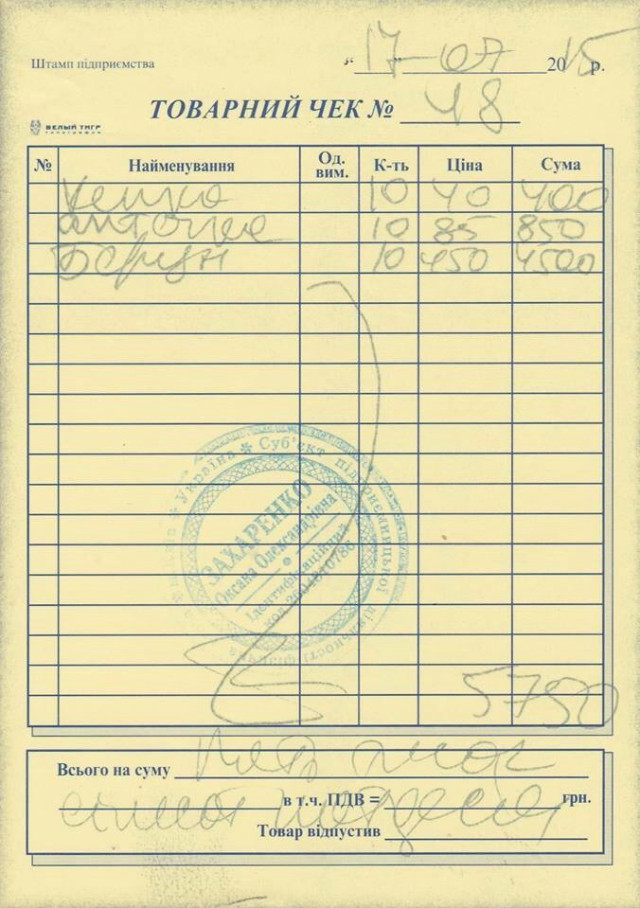 Штамп підприємства "17-07 2015 р.
ТОВАРНИЙ ЧЕК № 48
БЕЛЫЙ ТИГР
№ Найменування Од. вим. К-ть Ціна Сума
Кепка 10 40 400
10 85 850
10 450 4500
Україна * Суб'єкт підприємницької діяльності
ЗАХАРЕНКО
Оксана Олександрівна
Ідентифікаційний
код
5750
Всього на суму
в т.ч. ПДВ = грн.
Товар відпустив